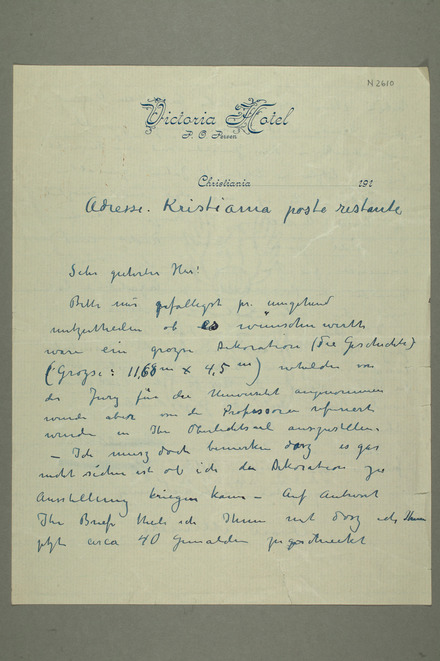 N 2610
Victoria Hotel
P. O. Persen
Christiania 191
Adresse. Kristiania poste restante
Sehr geehrter Herr!
Bitte mir gefälligst pr. umgehend
mitzutheilen ob es wünschenswerth
wäre ein grozse Dekoration (Die Geschichte)
(Grozse: 11,60 m x 4,5 m) welche von
der Jury für die Universität angenommen
wurde aber von den Professoren refusiert
wurde in Ihr Oberlichtsaal auszustellen
– Ich musz doch bemerken dasz es gar
nicht sicher ist ob ich die Dekoration zur
Ausstellung kriegen kann – Auf Antwort
Ihr Brief theile ich Ihnen mit dasz ich Ihnen
jetzt circa 40 Gemälden zugeschickt